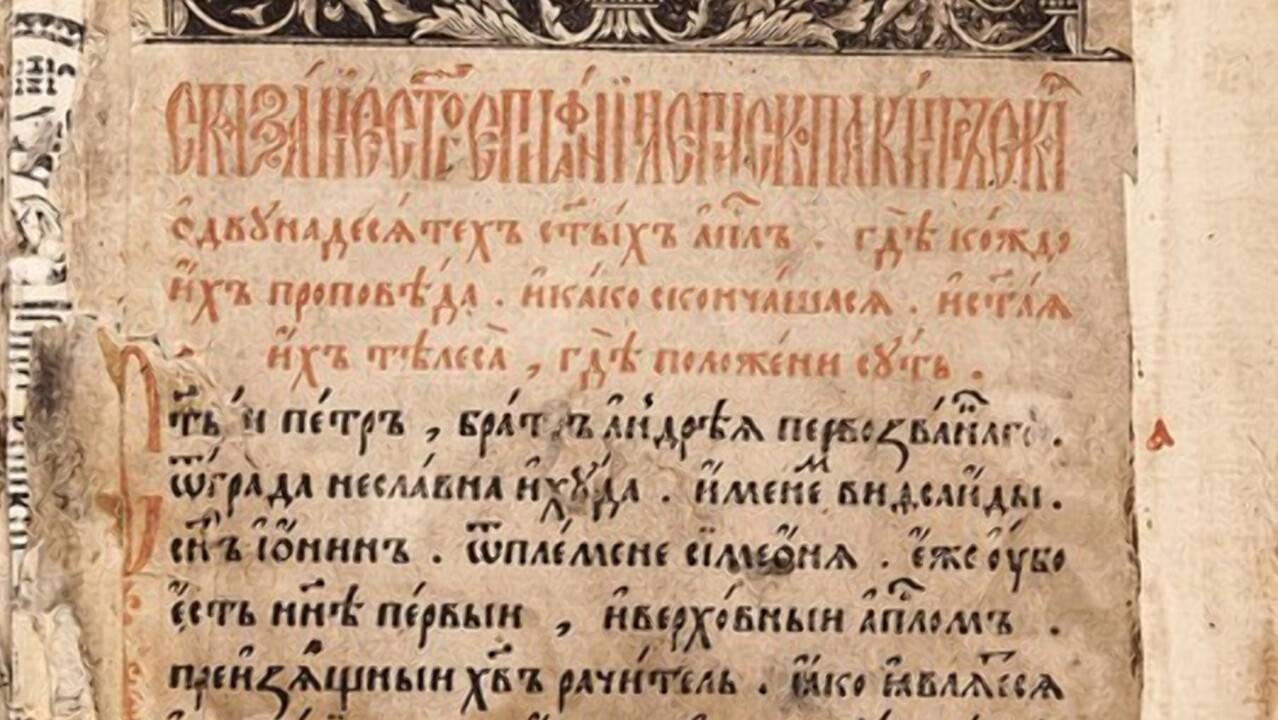 СКАЗАНІЕ СТ҃ГО ЕПИФАНІЯ ЕПІСКПА КИПРЪСКА҃
ѻ҆двꙋна́десѧтехъ ст҃ы́хъ а҆пⷭ҇лъ . гдѣ̀ ко́ждо
и҆́хъ проповѣ́да . и҆ка́ко сконча́шасѧ . и҆ст҃а́ѧ
и҆́хъ тѣлеса̀ , гдѣ̀ положе́ни сꙋ́ть .
ст҃ы́и пе́тръ , бра́тъ а҆ндре́ѧ первозва́ннаго .
ѿгра́да несла́вна и҆хꙋ́да . и҆́менемъ виѳсаи́ды .
сн҃ъ і҆ѻ́нинъ . ѿпле́мене сімеѻ́нѧ . є҆́же ᲂу҆́бо
є҆́сть нн҃ѣ пе́рвыи , и҆верхо́вныи а҆пⷭ҇лѡмъ .
преизѧ́щныи хв҃ъ рачи́тель . ꙗ҆́ко ꙗ҆влѧ́есѧ